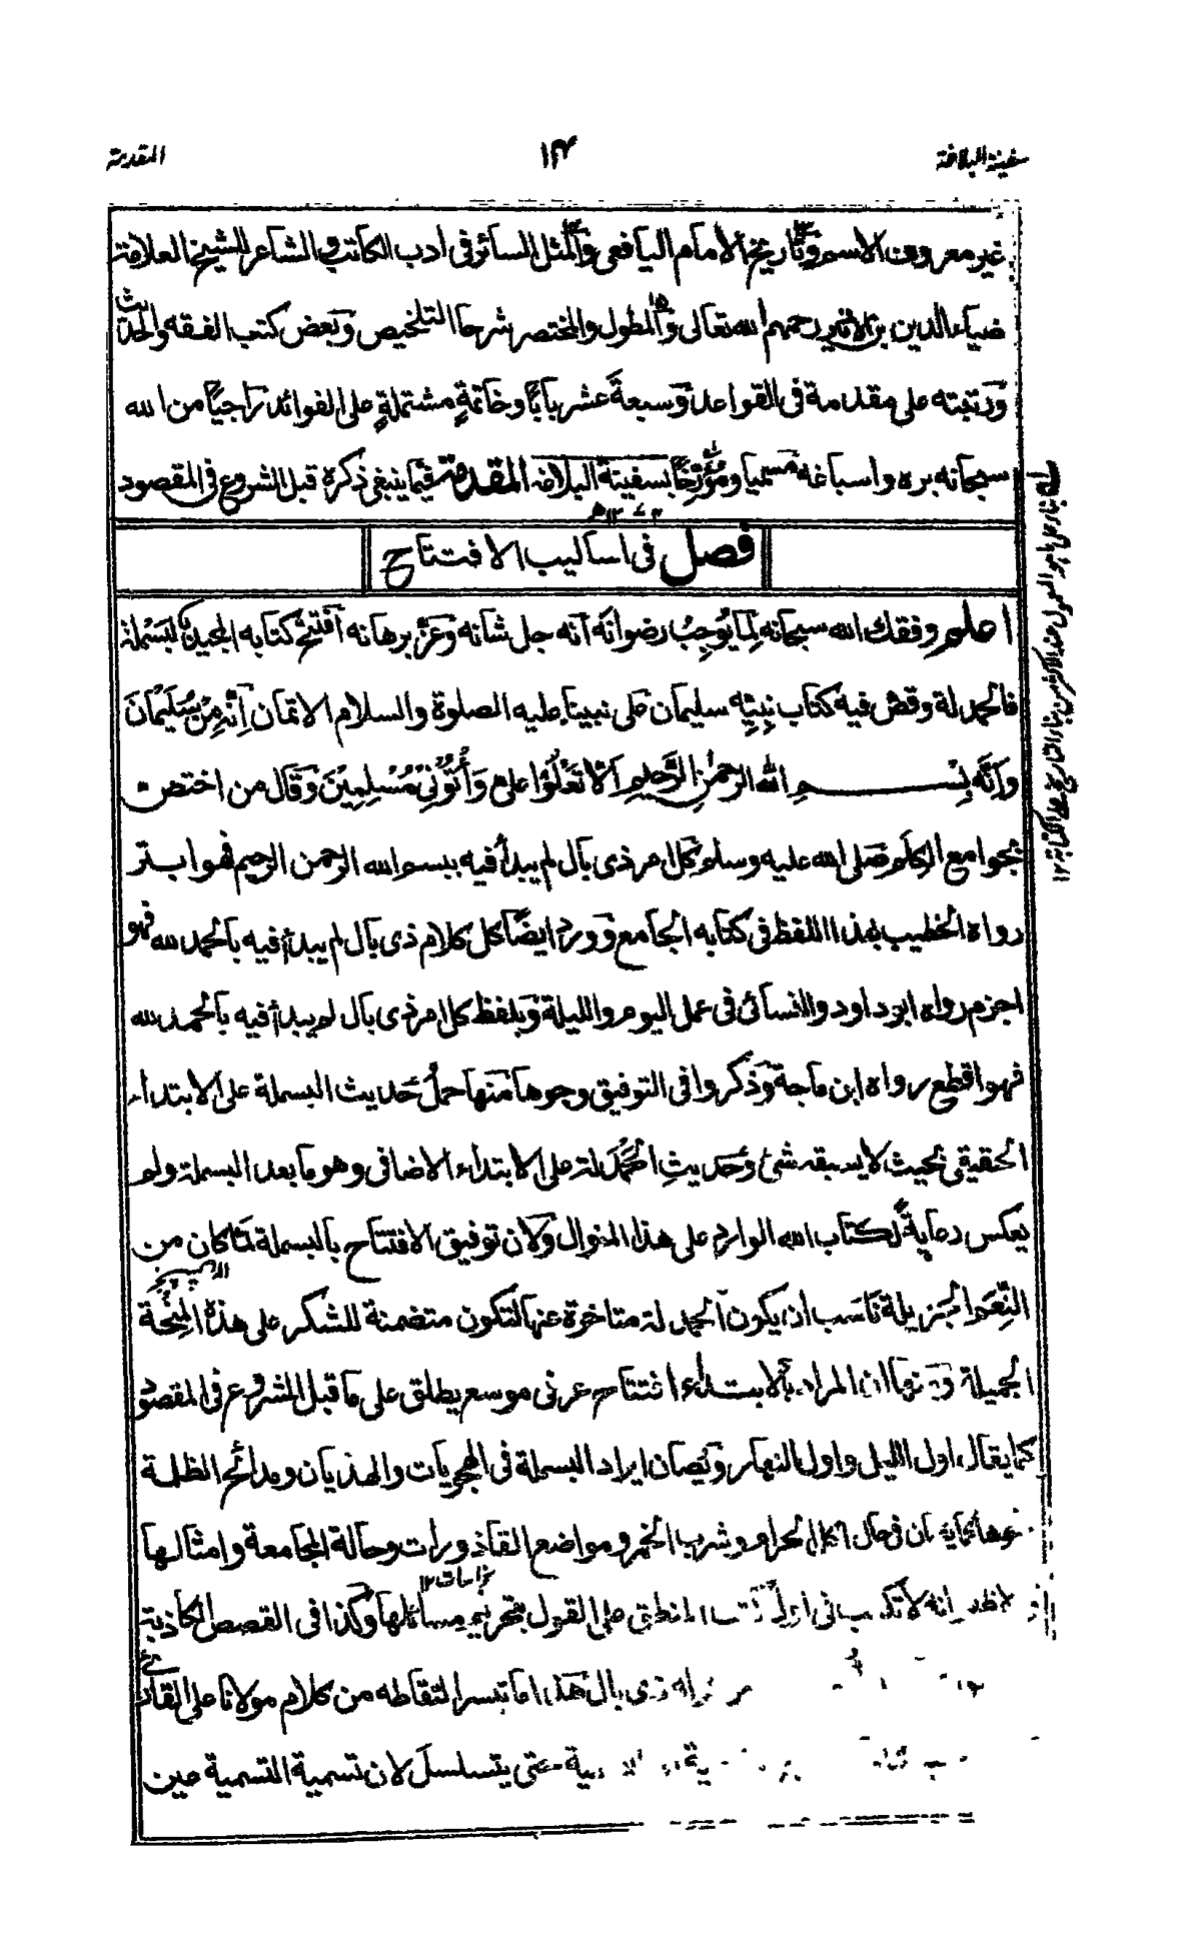 سفينة البلاغة
١٣
المقدمة
غير معروف الاسم وتاريخ الامام اليافعي والمثل السائر فى ادب الكاتب والشاعر للشيخ العلامة
ضياء الدين بن الاثير رحمهم الله تعالى والمطول والمختصر شرحا التلخيص وبعض كتب الفقه والحديث
ورتبته على مقدمة فى القواعد وسبعة عشر بابًا وخاتمةٍ مشتملةٍ على الفوائد راجيًا من الله
سبحانه بره واسباغه مسميا ومؤرخًا بسفينة البلاغة المقدمة فيما ينبغى ذكره قبل الشروع فى المقصود
فصل فى اساليب الافتتاح
اعلم وفقك الله سبحانه لِمَا يُوجِبُ رضوانه انه جل شانه وعز برهانه افتتح كتابه المجيد بالبَسْملة
فالحمد لة وقص فيه كتاب نبيِّه سليمان على نبينا عليه الصلوة والسلام الاتمان اِنَّهٗ مِنْ سُلَيْمَانَ
وَاِنَّهٗ بِسْــــمِ اللهِ الرَّحْمٰنِ الرَّحِيمِ اَلَّا تَعْلُوْا عَلَيَّ وَأْتُوْنِيْ مُسْلِمِيْنَ وقال من اختص
بجوامع الكلم صلى الله عليه وسلم كل امر ذى بال لم يبدأ فيه ببسم الله الرحمن الرحيم فهو ابتر
رواه الخطيب بهذا اللفظ فى كتابه الجامع وورد ايضًا كل كلام ذى بال لم يبدأ فيه بالحمد لله فهو
اجزم رواه ابو داود والنسائى فى عمل اليوم والليلة وبلفظ كل امر ذى بال لم يبدأ فيه بالحمد لله
فهو اقطع رواه ابن ماجة وذكروا فى التوفيق وجوها منها حمل حديث البسملة على الابتداء
الحقيقى بحيث لا يسبقه شئ وحديثِ الحَمْدَ لة على الابتداء الاضافى وهو ما بعد البسملة ولم
يعكس رعايةً لكتاب الله الوارد على هذا المنوال ولان توفيق الافتتاح بالبسملة لما كان من
النِّعَم الجزيلة ناسب ان يكون الحمد لة متاخرة عنها لتكون متضمنة للشكر على هذه المِنْحَة
الجميلة ومنها ان المراد بالابتداء افتتاح عرفى موسع يطلق على ما قبل الشروع فى المقصود
كما يقال اول الليل واول النهار وتصان ايراد البسملة فى الهجويات والهذيان ومدائح الظلمة
كما تصان فى حال اكل الحرام وشرب الخمر ومواضع القاذورات وحالة المجامعة وامثالها
انه لا تكتب فى المنطق على القول بتحريم مسائلها وكذا فى القصص الكاذبة
ذى بال هذا ما تيسر التقاطه من كلام مولانا على القارئ
حتى يتسلسل لان تسمية التسمية عين